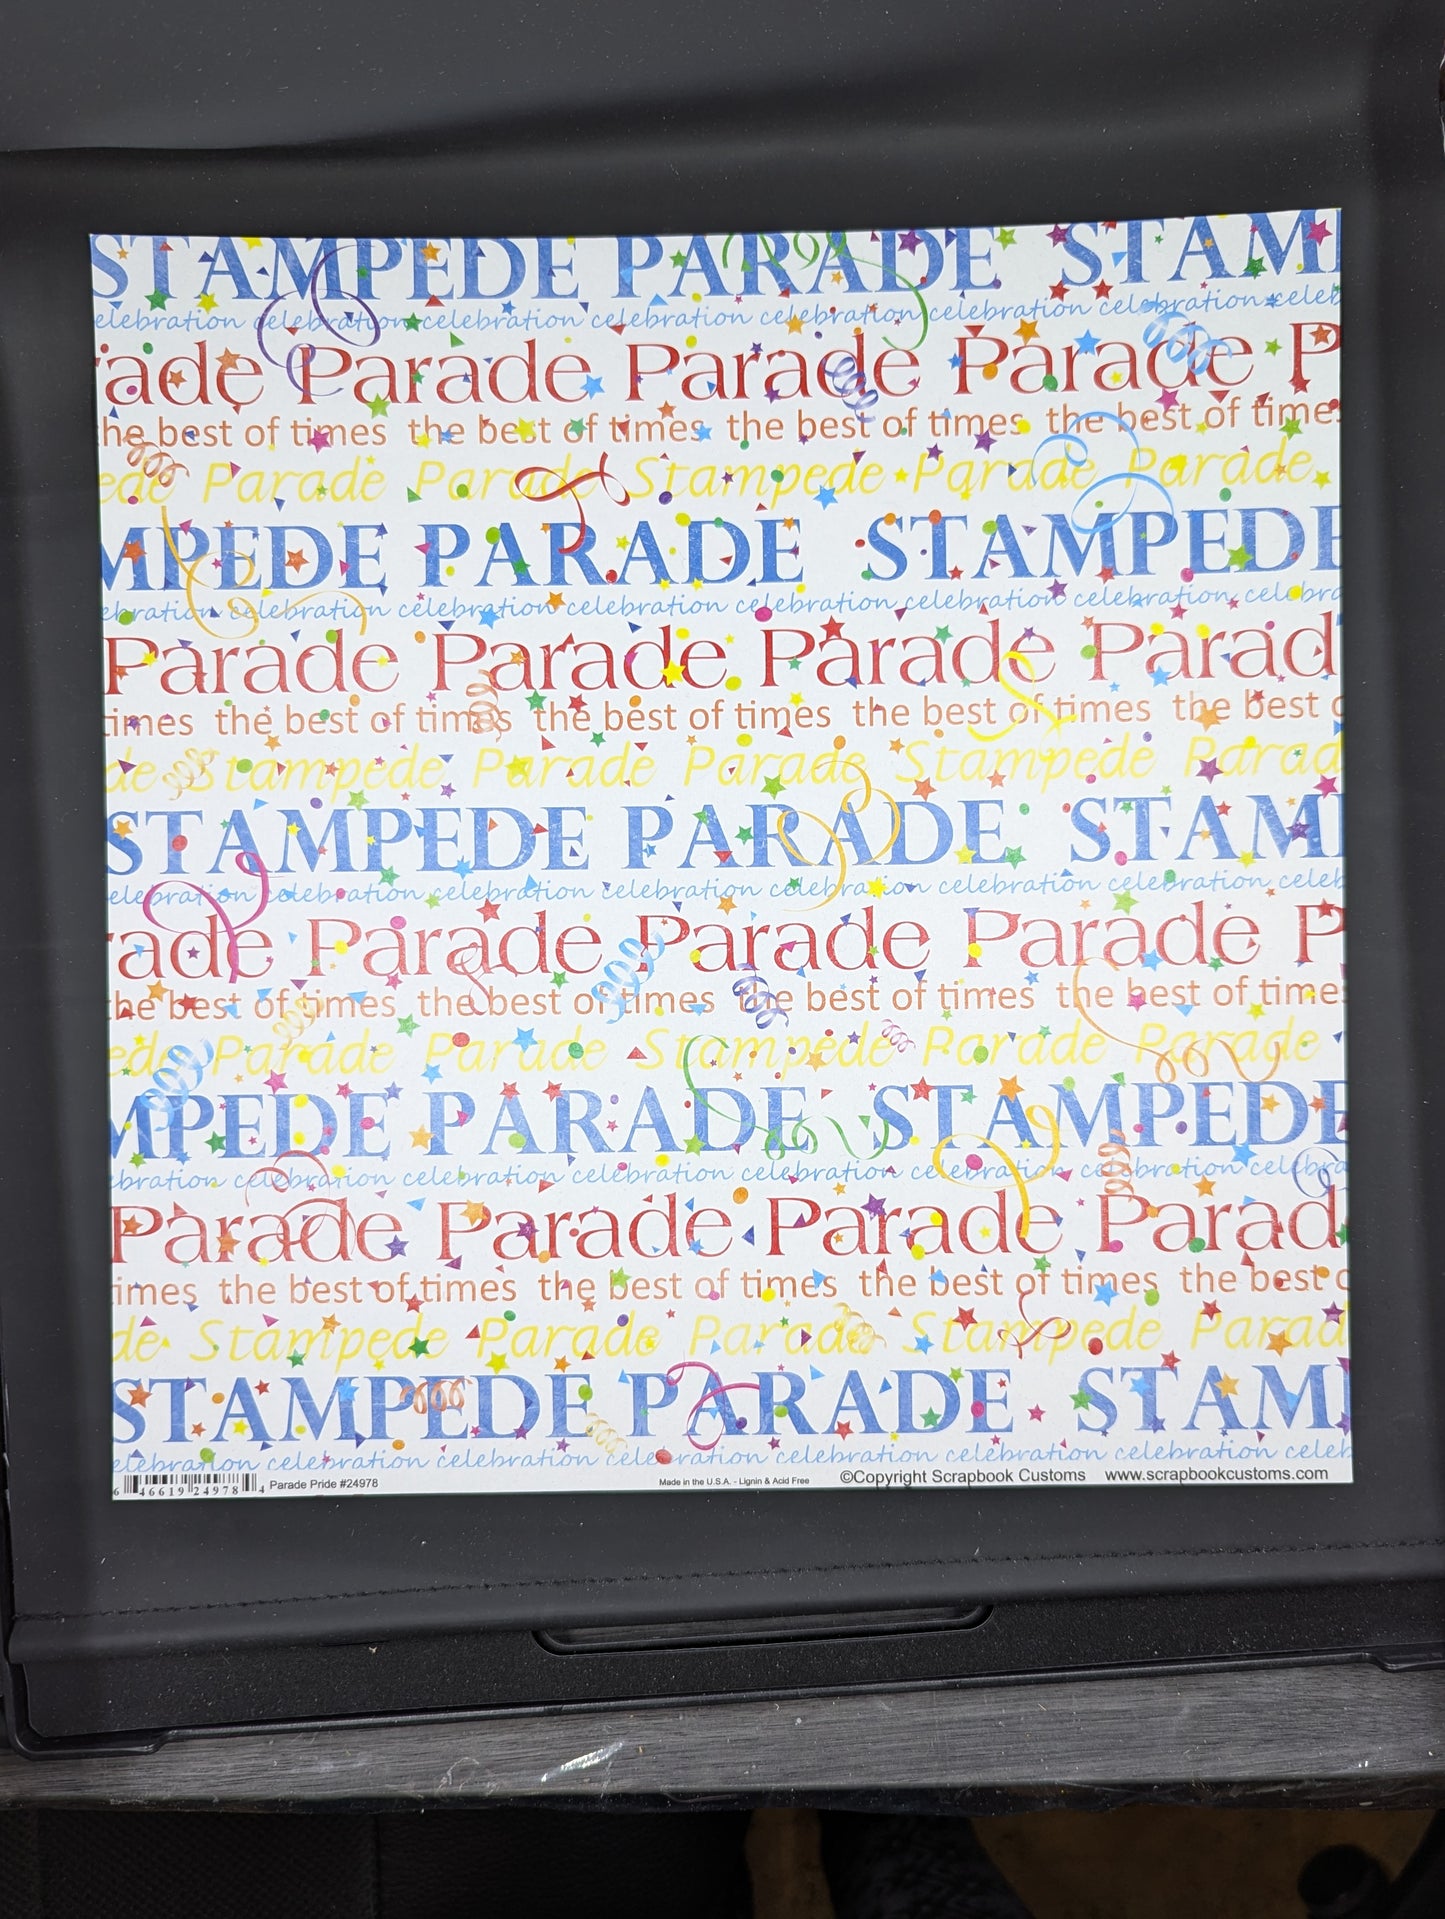 STAMPEDE PARADE STAM
elebration celebration celebration celebration celebration celebration celebration celeb
ade Parade Parade Parade P
he best of times the best of times the best of times the best of time
ede Parade Parade Stampede Parade Parade
MPEDE PARADE STAMPEDE
ebration celebration celebration celebration celebration celebration celebration celebra
Parade Parade Parade Parad
times the best of times the best of times the best of times the best o
de Stampede Parade Parade Stampede Parad
STAMPEDE PARADE STAM
elebration celebration celebration celebration celebration celebration celebration celeb
rade Parade Parade Parade P
the best of times the best of times the best of times the best of time
ede Parade Parade Stampede Parade Parade
MPEDE PARADE STAMPEDE
ebration celebration celebration celebration celebration celebration celebration celebra
Parade Parade Parade Parad
times the best of times the best of times the best of times the best o
de Stampede Parade Parade Stampede Parad
STAMPEDE PARADE STAM
elebration celebration celebration celebration celebration celebration celebration celeb
6 46619 24978 4 Parade Pride #24978 Made in the U.S.A. - Lignin & Acid Free ©Copyright Scrapbook Customs www.scrapbookcustoms.com